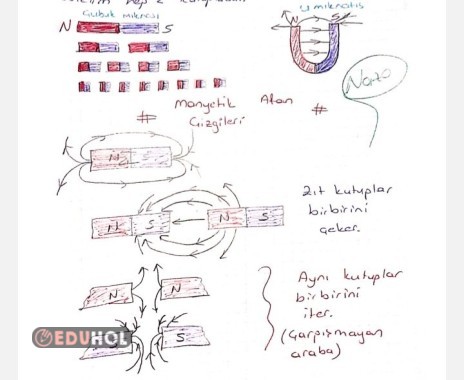 Çubuk Mıknatıs
U mıknatıs
N S
N S
Nota
# Manyetik Alan #
Çizgileri
N
N S N S
Zıt kutuplar
birbirini
çeker.
N N
Aynı kutuplar
birbirini
iter.
(Çarpışmayan
araba)
S S
EDUHOL